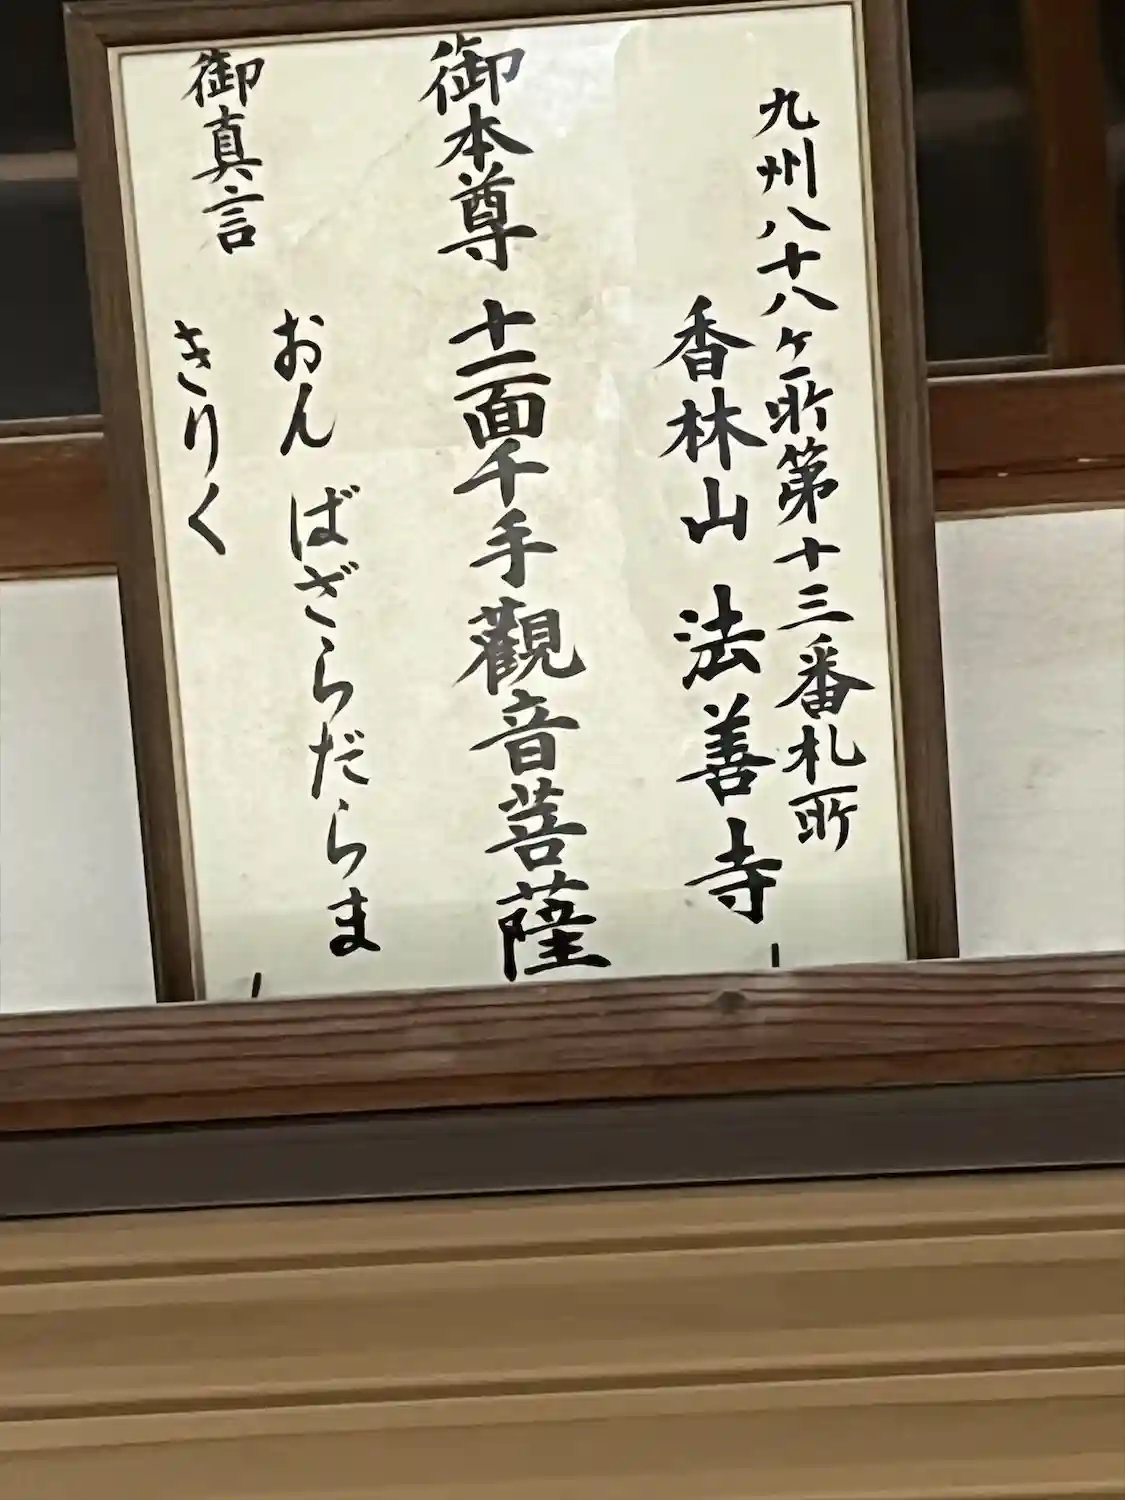 九州八十八ヶ所第十三番札所
香林山 法善寺
御本尊 十一面千手觀音菩薩
御真言
おん ばざらだらま
きりく